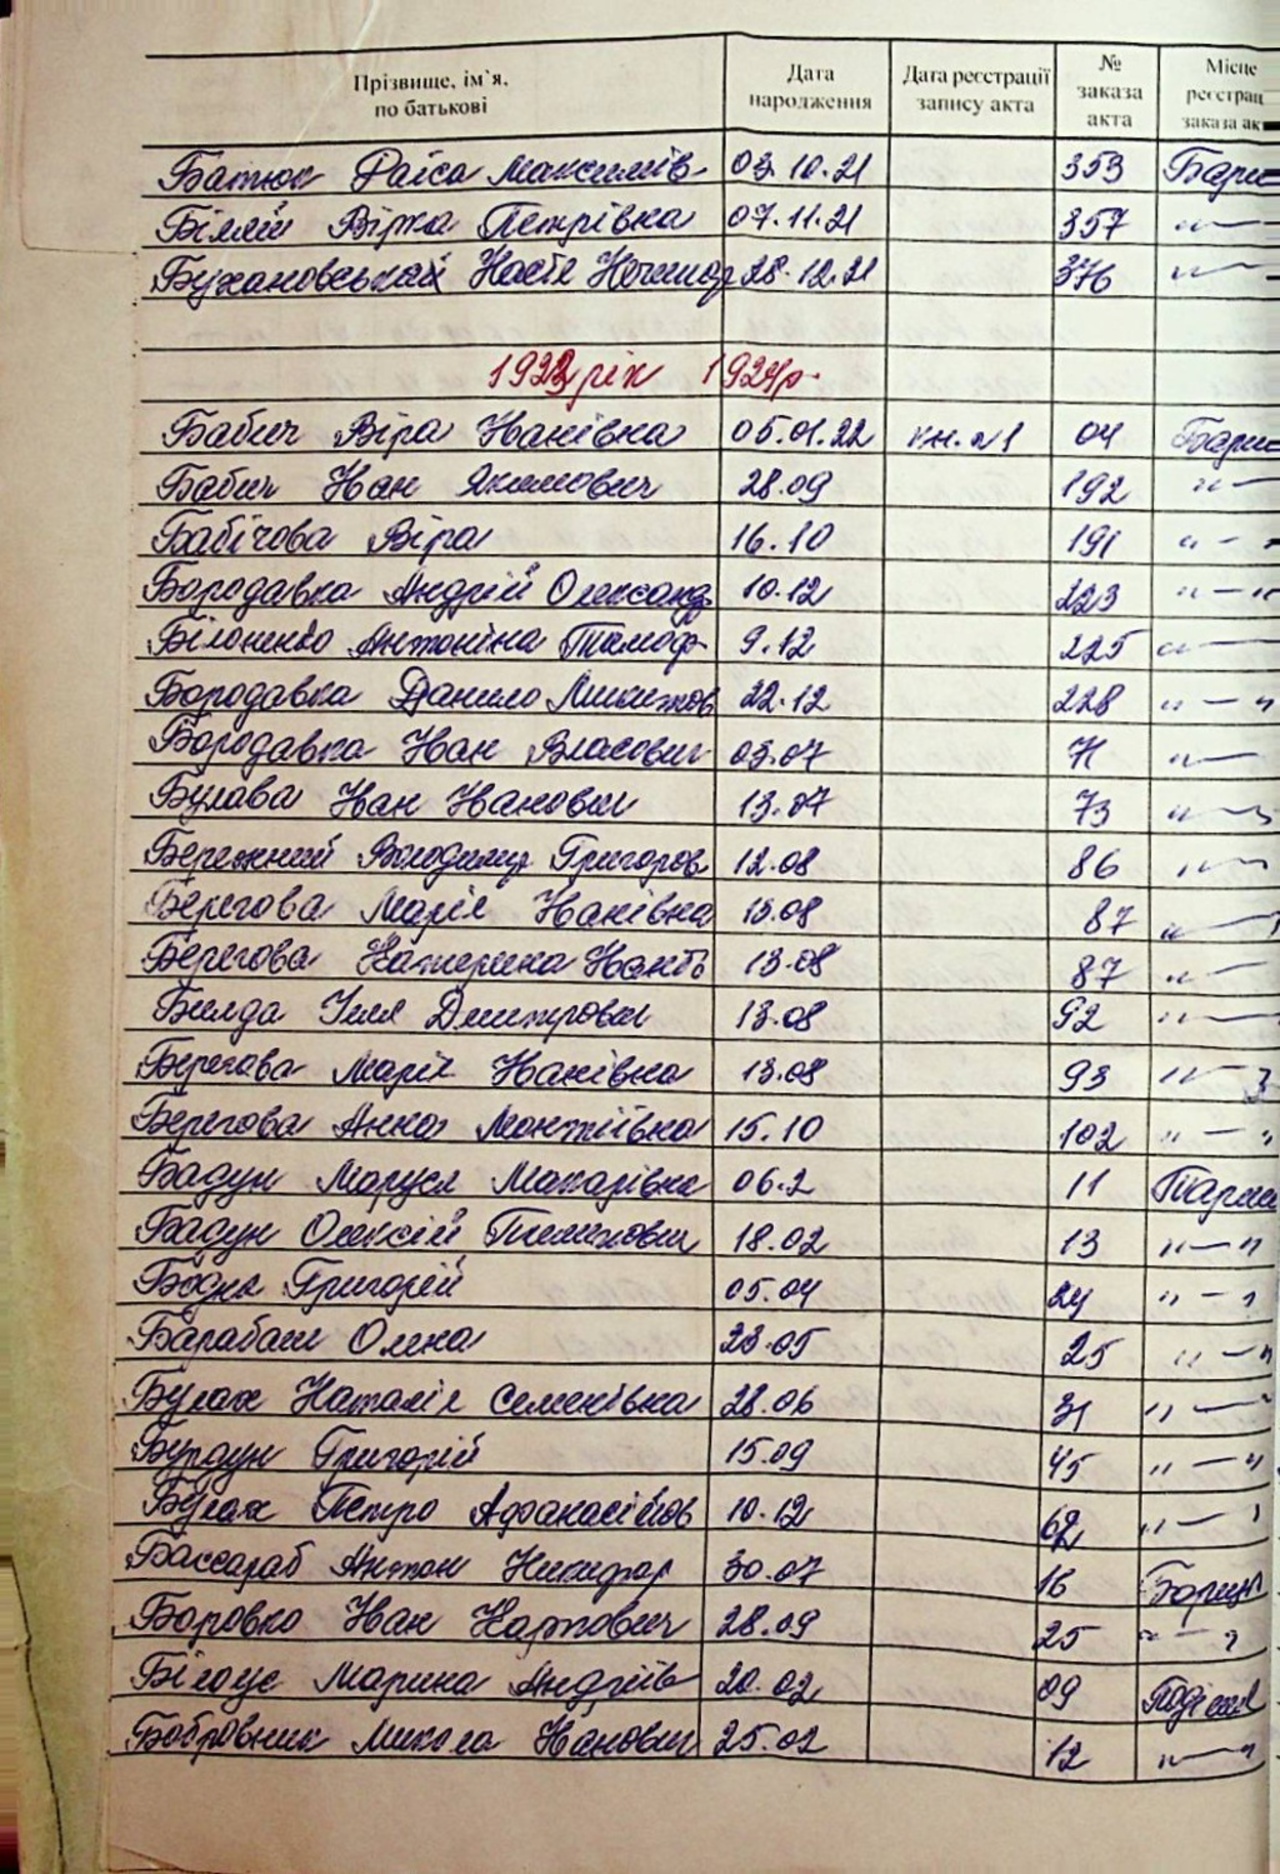 Прізвище, ім`я, по батькові Дата народження Дата реєстрації запису акта № заказа акта Місце реєстрац заказа ак
Батюк Раїса Максимів 03.10.21 353 Бари
Біляй Вірка Петрівка 07.11.21 357 "—"
Бухановська Настя 28.12.21 376 "—"
1922 рік 1924р.
Бабич Віра Іванівна 05.01.22 кн.№1 04 Бари
Бабич Іван Якимович 28.09 192 "—"
Бабічова Віра 16.10 191 "—"
Бородавка Андрій Олександ 10.12 223 "—"
Білоненко Антоніна Тимоф 9.12 225 "—"
Бородавка Данило Микитов 22.12 228 "—"
Бородавка Іван Власович 03.07 71 "—"
Булава Іван Іванович 13.07 73 "—"
Бережний Володимир Григоров 12.08 86 "—"
Берегова Марія Іванівна 13.08 87 "—"
Берегова Катерина 13.08 87 "—"
Ілля Дмитрович 13.08 92 "—"
Берегова Марія Іванівна 13.08 93 "—"
Берегова Анна 15.10 102 "—"
Бадун Маруся Макарівна 06.2 11
Бадун Олексій Пилипович 18.02 13 "—"
Григорій 05.04 24 "—"
Барабаш Олена 23.05 25 "—"
Булах Наталія Семенівна 28.06 31 "—"
Бурдун Григорій 15.09 45 "—"
Булах Петро Афанасійов 10.12 62 "—"
Бассараб Антон Никифор 30.07 16
Боровко Іван Карпович 28.09 25 "—"
Білоус Марина Андріїв 20.02 09
Бобровник Микола Іванович 25.02 12 "—"